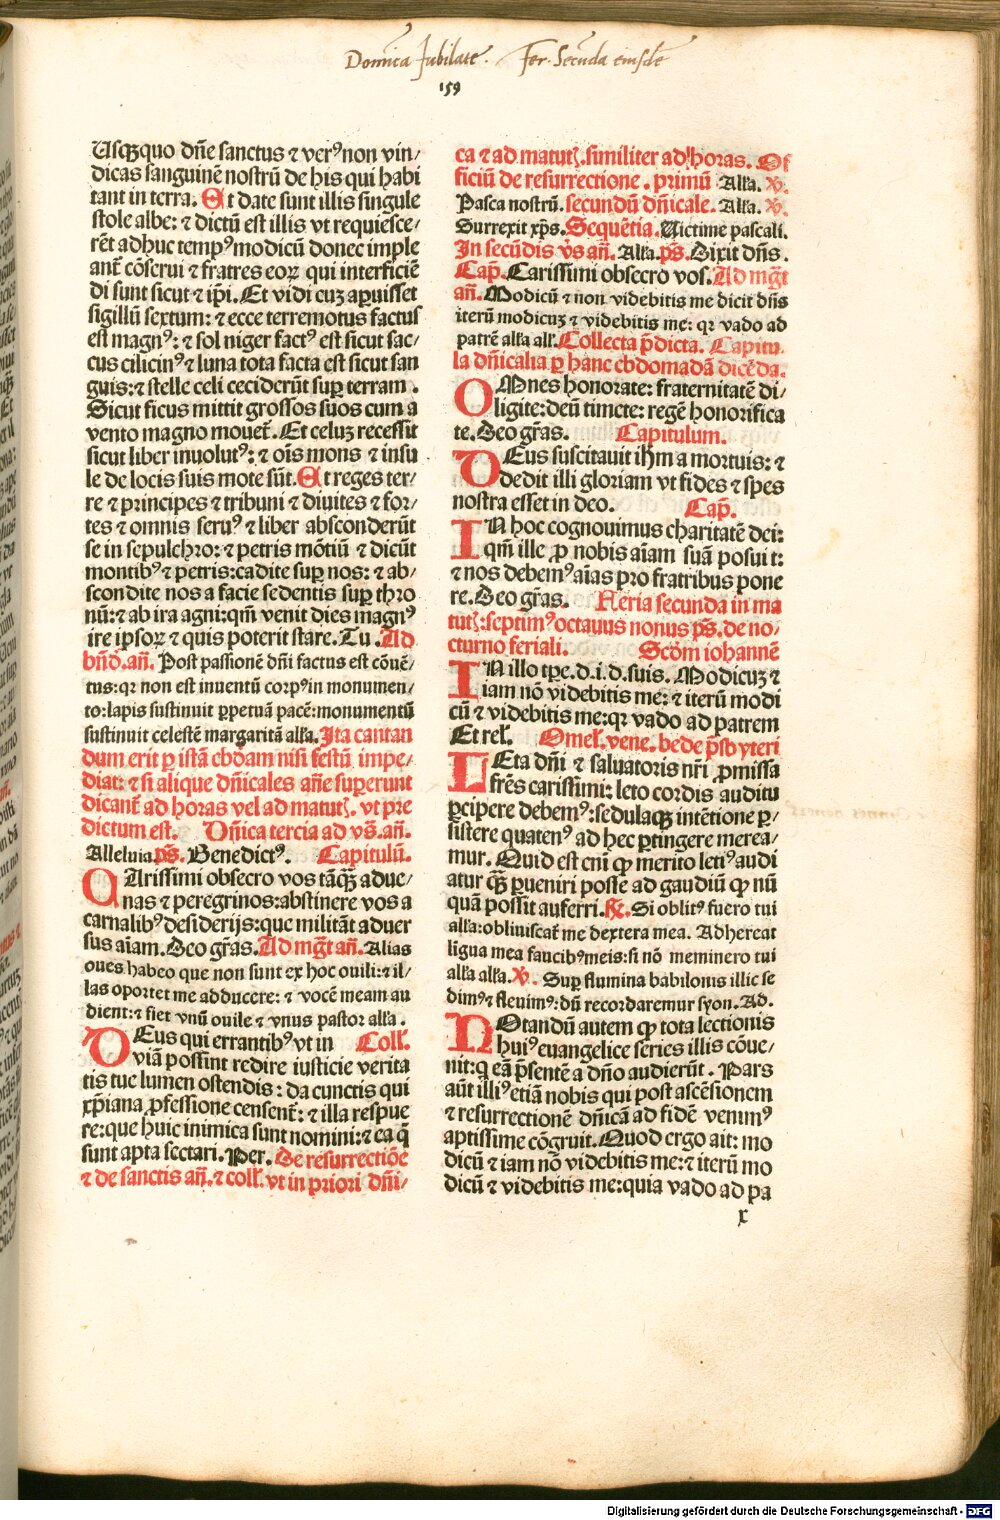 Domīca Jubilate. Fer. Secūda eiusdē
159
Usq̄quo dn̄e sanctus ⁊ verꝰ non vin/
dicas sanguinē nostrū de his qui habi
tant in terra. Et date sunt illis singule
stole albe: ⁊ dictū est illis vt requiesce/
rēt adhuc tempꝰ modicū donec imple
ant̄ cōserui ⁊ fratres eoꝝ qui interficiē
di sunt sicut ⁊ ip̄i. Et vidi cuꝫ aꝑuisset
sigillū sextum: ⁊ ecce terremotus factus
est magnꝰ: ⁊ sol niger factꝰ est sicut sac/
cus cilicinꝰ ⁊ luna tota facta est sicut san
guis: ⁊ stelle celi ceciderūt suꝑ terram.
Sicut ficus mittit grossos suos cum a
vento magno mouet̄. Et celuꝫ recessit
sicut liber inuolutꝰ: ⁊ oīs mons ⁊ insu
le de locis suis mote sūt. Et reges ter/
re ⁊ principes ⁊ tribuni ⁊ diuites ⁊ for/
tes ⁊ omnis seruꝰ ⁊ liber absconderūt
se in sepulchro: ⁊ petris mōtiū ⁊ dicūt
montibꝰ ⁊ petris: cadite suꝑ nos: ⁊ ab/
scondite nos a facie sedentis suꝑ thro
nū: ⁊ ab ira agni: qm̄ venit dies magnꝰ
ire ipsoꝝ ⁊ quis poterit stare. Tu. Ad
bn̄d. an̄. Post passionē dn̄i factus est cōuē/
tus: qꝛ non est inuentū corpꝰ in monumen/
to: lapis sustinuit ꝑpetuā pacē: monumentū
sustinuit celestē margaritā all'a. Ita cantan
dum erit ꝑ istā ebdoam nisi festū impe/
diat: ⁊ si alique dn̄icales an̄e suꝑerunt
dicant̄ ad horas vel ad matut̄. vt pre
dictum est. Dn̄ica tercia ad vs̄. an̄.
Alleluia. ps̄. Benedictꝰ. Capitulū.
CArissimi obsecro vos tāq̄ꝫ adue/
nas ⁊ peregrinos: abstinere vos a
carnalibꝰ desiderijs: que militāt aduer
sus aīam. Deo gr̄as. Ad mḡt an̄. Alias
oues habeo que non sunt ex hoc ouili: ⁊ il/
las oportet me adducere: ⁊ vocē meam au
dient: ⁊ fiet vnū ouile ⁊ vnus pastor all'a.
DEus qui errantibꝰ vt in Coll'.
viā possint redire iusticie verita
tis tue lumen ostendis: da cunctis qui
xp̄iana ꝓfessione censent̄: ⁊ illa respue
re: que huic inimica sunt nomini: ⁊ ea q̄
sunt apta sectari. Per. De resurrectiōe
⁊ de sanctis an̄. ⁊ coll'. vt in priori dn̄i/
ca ⁊ ad matut̄. similiter ad horas. Of
ficiū de resurrectione. primū All'a. ℣.
Pasca nostrū. secundū dn̄icale. All'a. ℣.
Surrexit xp̄s. Sequētia. Victime pascali.
In secūdis vs̄ an̄. All'a. ps̄. Dixit dn̄s.
Cap̄. Carissimi obsecro vos. Ad mḡt
an̄. Modicū ⁊ non videbitis me dicit dn̄s
iterū modicuꝫ ⁊ videbitis me: qꝛ vado ad
patrē all'a all'. Collecta p̄dicta. Capitu.
la dn̄icalia ꝑ hanc ebdomadā dicēda.
OMnes honorate: fraternitatē di/
ligite: deū timete: regē honorifica
te. Deo gr̄as. Capitulum.
DEus suscitauit ih̄m a mortuis: ⁊
dedit illi gloriam vt fides ⁊ spes
nostra esset in deo. Cap̄.
IN hoc cognouimus charitatē dei:
qm̄ ille ꝓ nobis aīam suā posuit:
⁊ nos debemꝰ aīas pro fratribus pone
re. Deo gr̄as. Feria secunda in ma
tut̄: septimꝰ octauus nonus ps̄. de no/
cturno feriali. Scd̄m iohannē
IN illo tꝑe. d. i. d. suis. Modicuꝫ ⁊
iam nō videbitis me: ⁊ iterū modi
cū ⁊ videbitis me: qꝛ vado ad patrem
Et rel'. Omel'. vene. bede p̄sbyteri
LEta dn̄i ⁊ saluatoris nr̄i ꝓmissa
fr̄es carissimi: leto cordis auditu
ꝑcipere debemꝰ: sedulaqꝫ intētione ꝑ/
sistere quatenꝰ ad hec ꝑtingere merea/
mur. Quid est em̄ ꝙ merito letiꝰ audi
atur q̄ꝫ ꝑueniri posse ad gaudiū ꝙ nū
quā possit auferri. ℟. Si oblitꝰ fuero tui
all'a: obliuiscat̄ me dextera mea. Adhereat
ligua mea faucibꝰ meis: si nō meminero tui
all'a all'a. ℣. Suꝑ flumina babilonis illic se
dimꝰ ⁊ fleuimꝰ: dū recordaremur syon. Ad.
NOtandū autem ꝙ tota lectionis
huiꝰ euangelice series illis cōue/
nit: q eā p̄sentē a dn̄o audierūt. Pars
aūt illiꝰ etiā nobis qui post ascēsionem
⁊ resurrectionē dn̄icā ad fidē venimꝰ
aptissime cōgruit. Quod ergo ait: mo
dicū ⁊ iam nō videbitis me: ⁊ iterū mo
dicū ⁊ videbitis me: quia vado ad pa
x
Digitalisierung gefördert durch die Deutsche Forschungsgemeinschaft - DFG